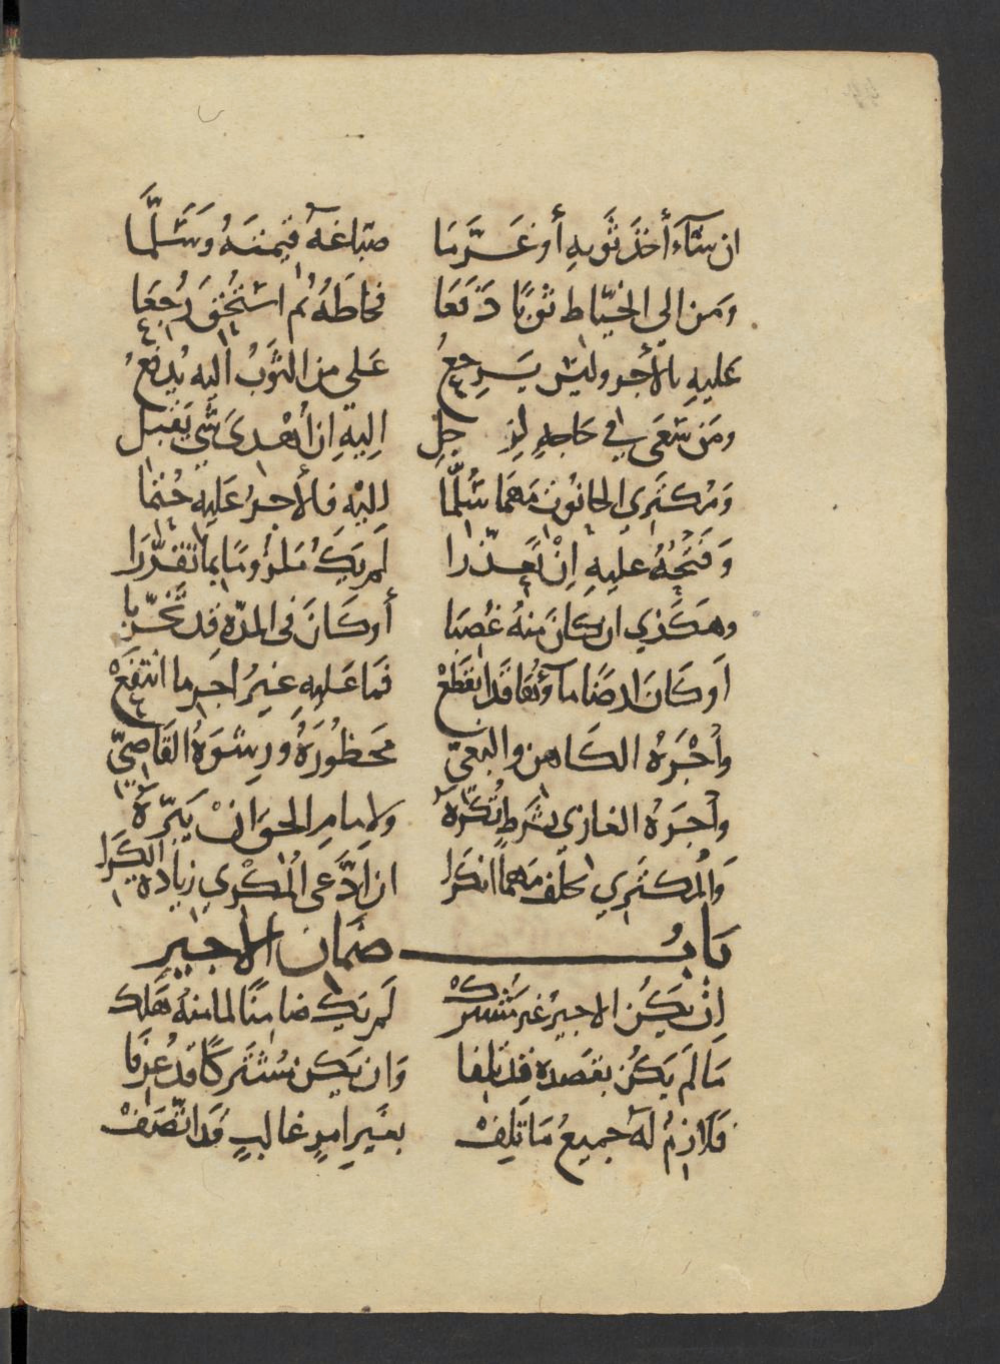 ان شآء أخذ ثَوبهِ أو غَرَّمَا صبّاغهُ قيمتَهُ وَسَلَّمَا
وَمَن الي الخيّاط ثوبًا دَفَعَا فخاطَهُ ثم استُحِقَّ رُجِعَا
عليهِ بالأجر وليس يَرجعُ عَلى من الثوبُ اليه يُدفعُ
ومَن سَعَى في حَاجةٍ لرجلِ اليهِ ان أهْدىَ شَي يَقبلِ
وَمُكتَرِي الحانُوت مَهمَا سُلّما اليْه فالأجرُ عَليهِ حُتما
وَفَتحُهُ عليهِ اِنْ تَعذّرا لَم يَكُ ملزومًا بما تقرّرَا
وهكَذي ان كانَ منهُ غُصِبَا أو كَانَ فى المدّةِ قد تَخَرّبا
اَو كَانَ ارضًا مآؤهَا قَد انقطعْ فمَا عَليهِ غيرُ اجرِ ما انتفَعْ
وأجْرَةُ الكَاهن والبغيّ محَظُورَةٌ ورِشوَةُ القَاضِيّ
وأجرَةُ الغازي بشَرطٍ تُكْرَهُ ولامامِ الحق انْ يَبَرّهُ
وَالمُكتَرِي يحلف مَهمَا انكَرا ان ادَّعى المُكْرِي زيادة الكِرَا
بَابُ ضمان الاجير
اِنْ يَكُن الاجيرُ غيرَ مُشتركْ لَم يَكُ ضامِنًا لما منهُ هَلك
مَا لَم يَكُن بقصدهِ قد تَلِفا وَان يَكن مُشتَركًا قد عُرفا
فَلازمٌ لَهُ جميعُ مَا تَلِفْ بغَيرِ امرٍ غالبٍ قد اتّصَفْ